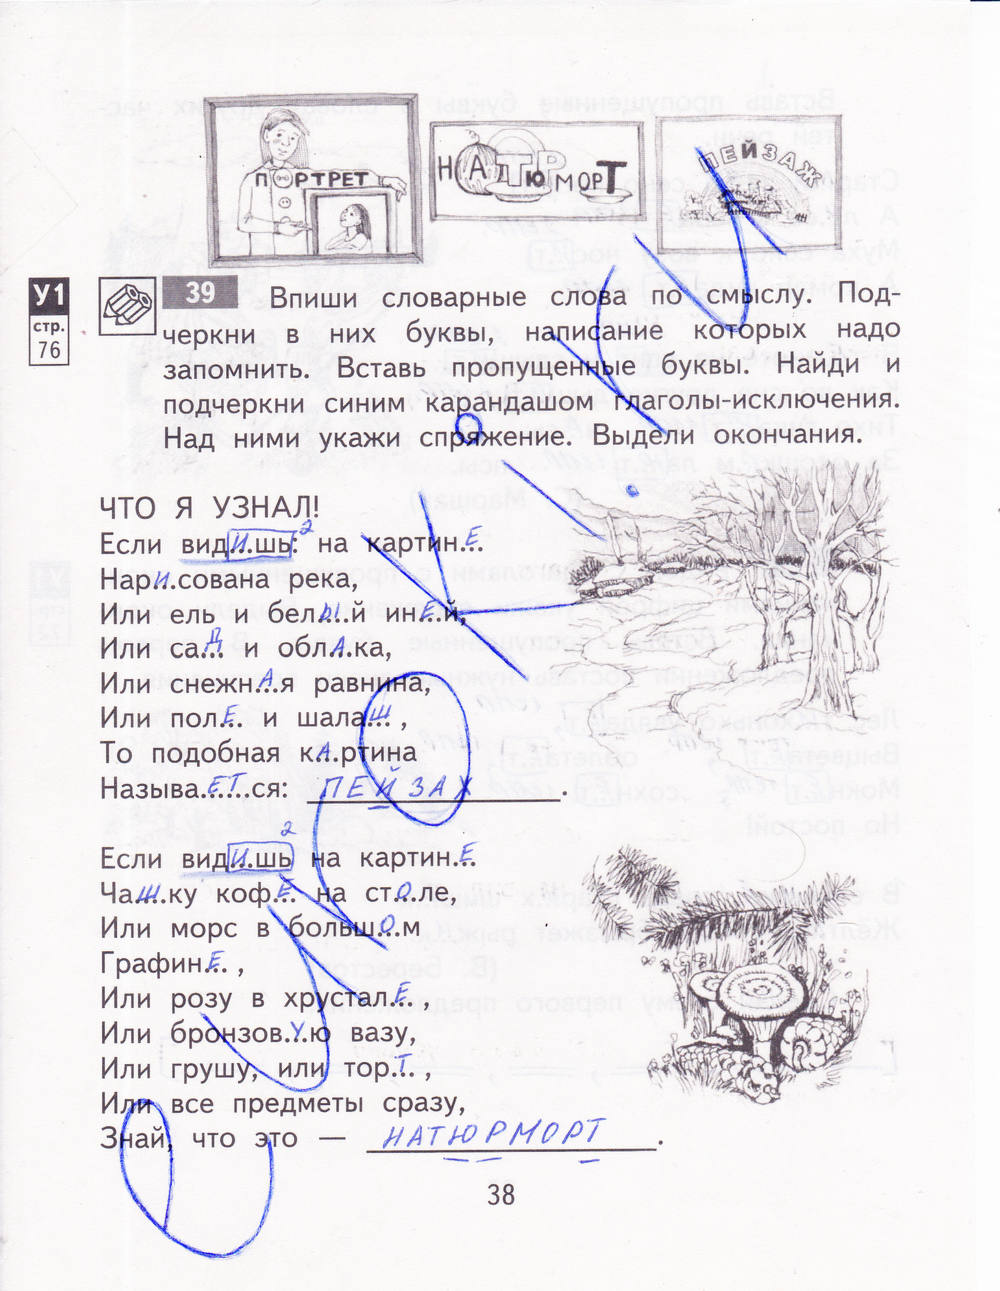 ПОРТРЕТ
НАТЮРМОРТ
ПЕЙЗАЖ
У1
стр.
76
39 Впиши словарные слова по смыслу. Под-
черкни в них буквы, написание которых надо
запомнить. Вставь пропущенные буквы. Найди и
подчеркни синим карандашом глаголы-исключения.
Над ними укажи спряжение. Выдели окончания.
ЧТО Я УЗНАЛ!
2
Если вид..И..шь: на картин..Е..
Нар..И..сована река,
Или ель и бел..Ы..й ин..Е..й,
Или са..Д.. и обл..А..ка,
Или снежн..А..я равнина,
Или пол..Е.. и шала..Ш.. ,
То подобная к..А..ртина
Называ..ЕТ..ся: ПЕЙЗАЖ.
2
Если вид..И..шь на картин..Е..
Ча..Ш..ку коф..Е.. на ст..О..ле,
Или морс в больш..О..м
Графин..Е.. ,
Или розу в хрустал..Е.. ,
Или бронзов..У..ю вазу,
Или грушу, или тор..Т.. ,
Или все предметы сразу,
Знай, что это — НАТЮРМОРТ.
38